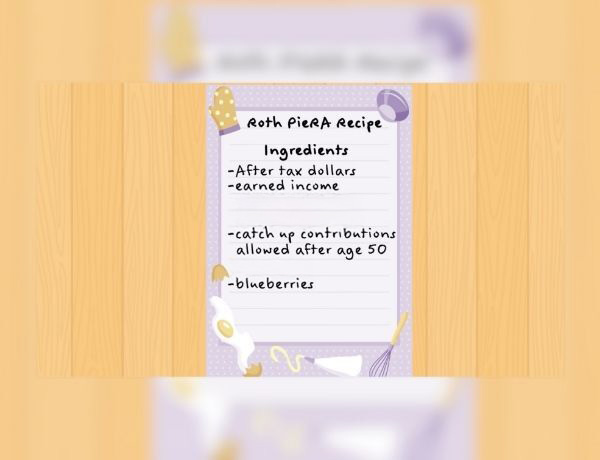 Roth PieRA Recipe
Ingredients
-After tax dollars
-earned income
-catch up contributions
allowed after age 50
-blueberries